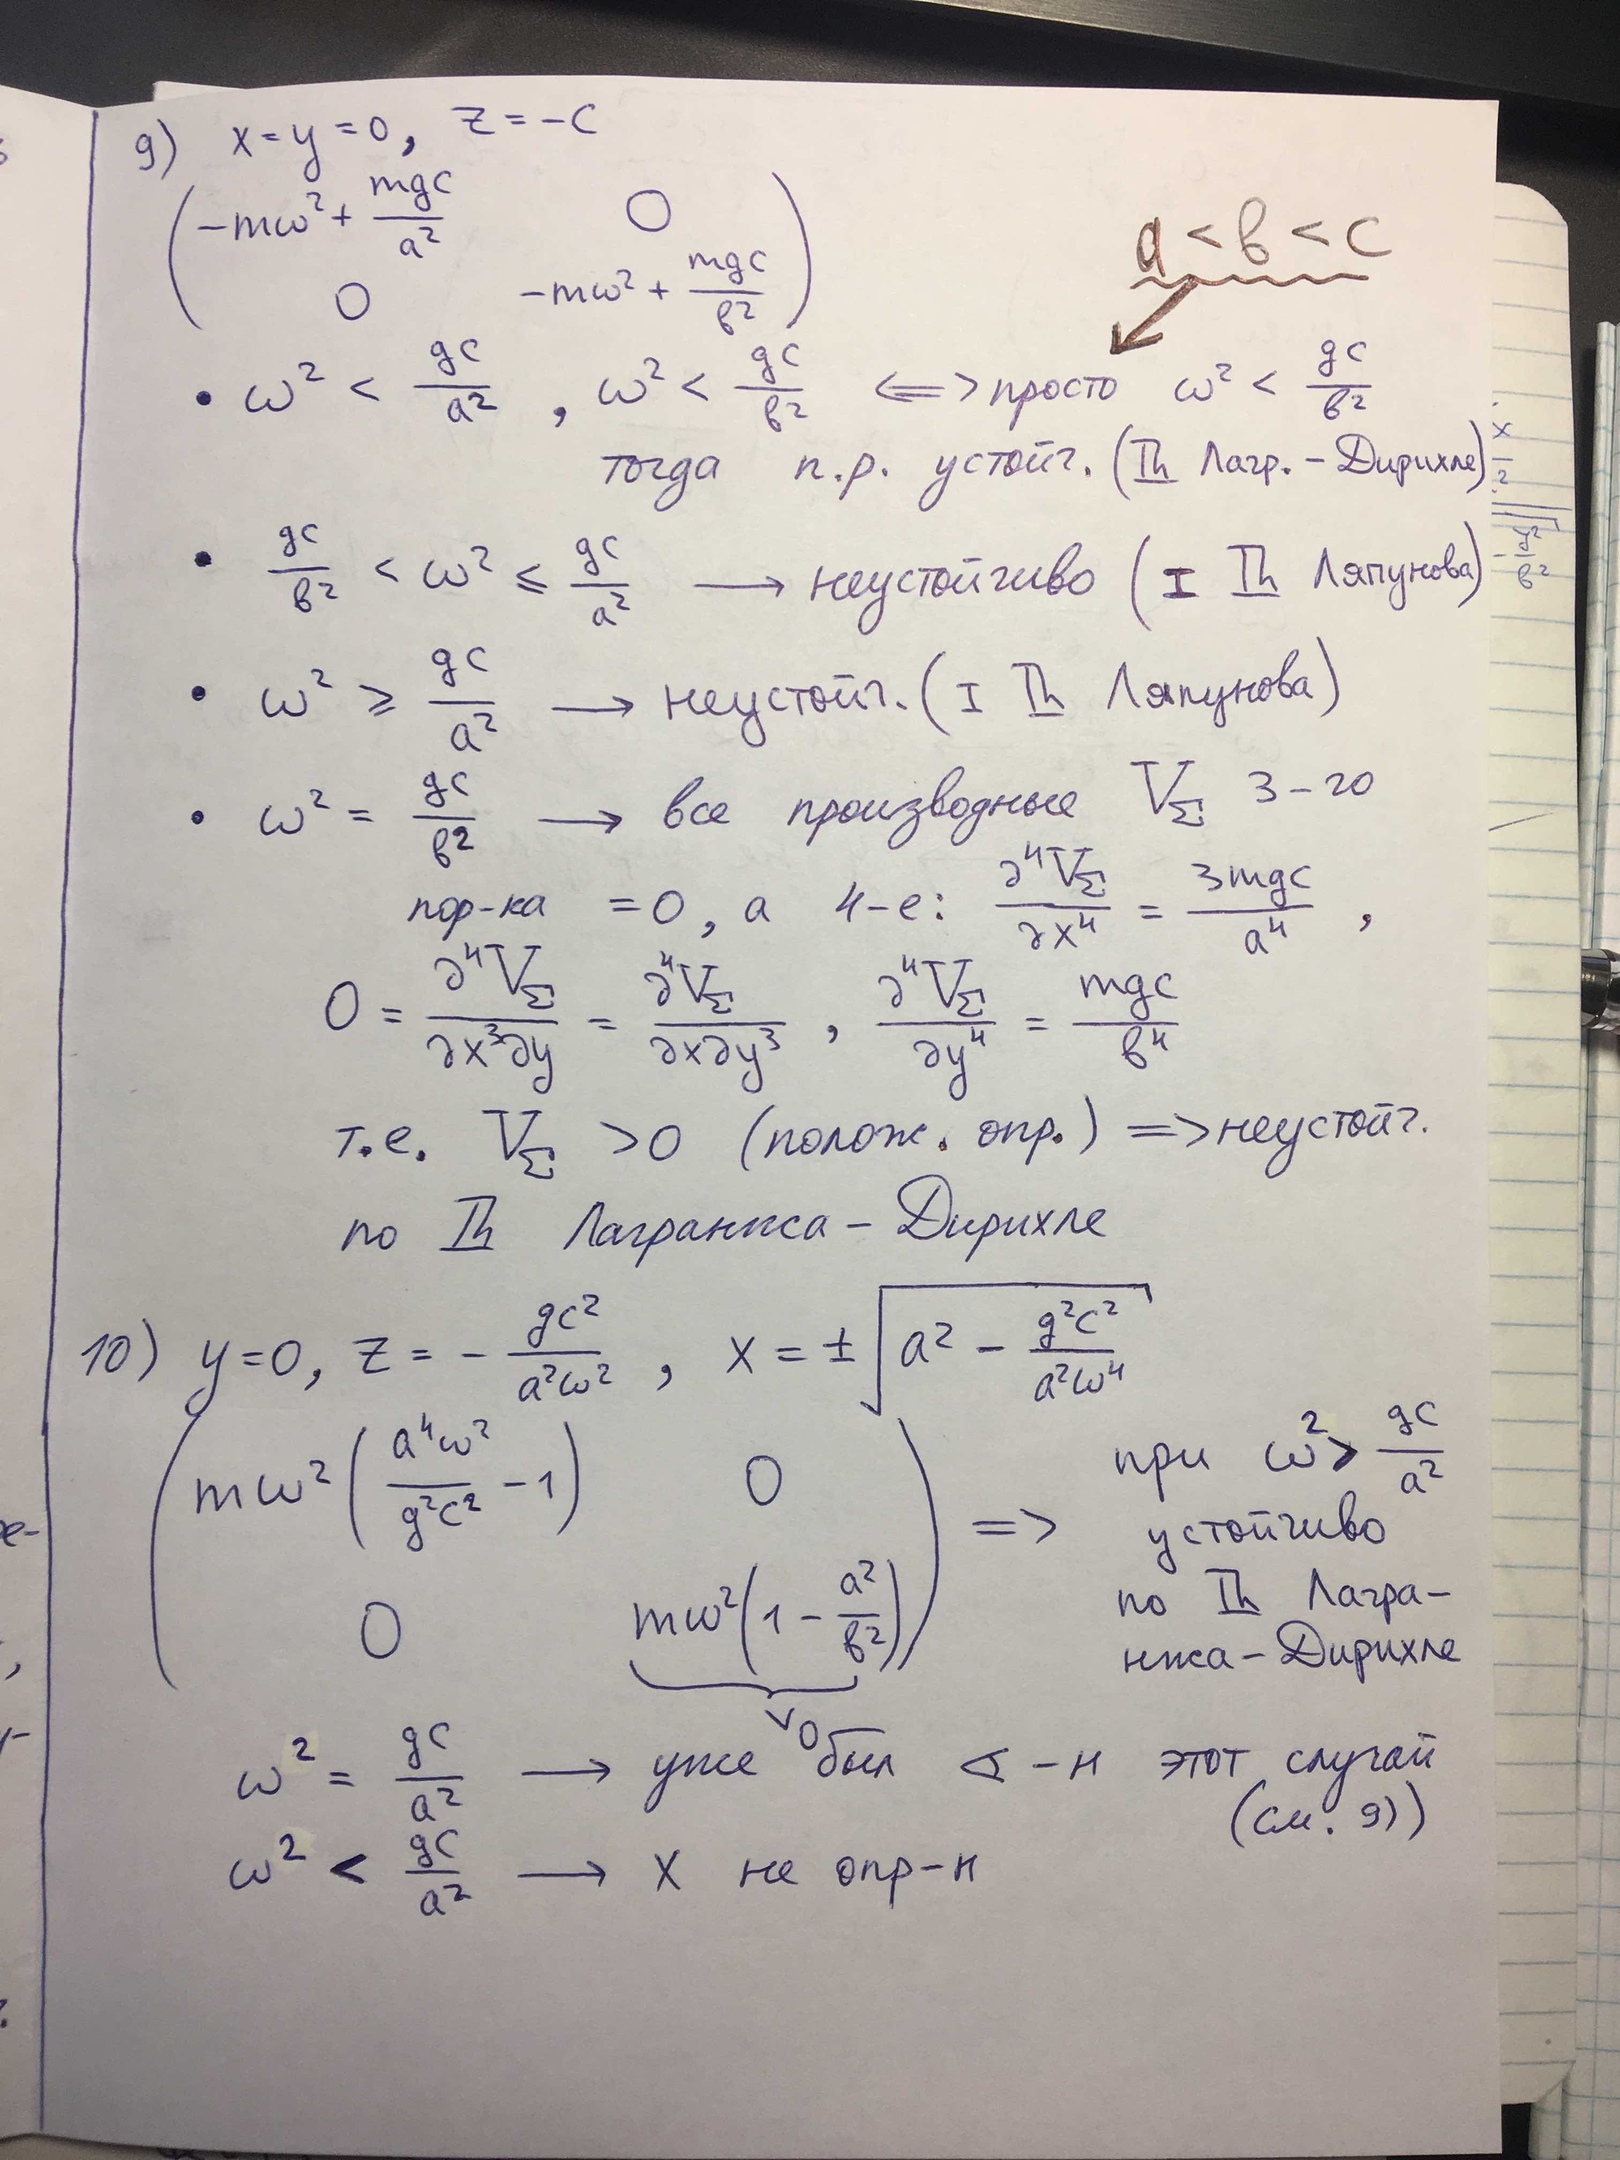 9) x=y=0, z=-c
(-mω²+mgc/a² 0
0 -mω²+mgc/b²)
a<b<c
• ω² < gc/a², ω² < gc/b² <=> просто ω² < gc/b²
тогда п.р. устойч. (Th Лагр.-Дирихле)
• gc/b² < ω² ≤ gc/a² → неустойчиво (I Th Ляпунова)
• ω² ≥ gc/a² → неустойч. (I Th Ляпунова)
• ω² = gc/b² → все производные V_Σ 3-го
пор-ка =0, а 4-е: ∂⁴V_Σ/∂x⁴ = 3mgc/a⁴,
0 = ∂⁴V_Σ/∂x³∂y = ∂⁴V_Σ/∂x∂y³, ∂⁴V_Σ/∂y⁴ = mgc/b⁴
т.е. V_Σ >0 (полож. опр.) => неустойч.
по Th Лагранжса-Дирихле
10) y=0, z = -gc²/a²ω², x = ±√(a² - g²c²/a²ω⁴)
(mω²(a⁴ω²/g²c² -1) 0
0 mω²(1 - a²/b²))
∨
0
=> при ω² > gc/a²
устойчиво
по Th Лагра-
нжа-Дирихле
ω² = gc/a² → уже был <-н этот случай
(см. 9))
ω² < gc/a² → x не опр-н
x
2
y²
b²